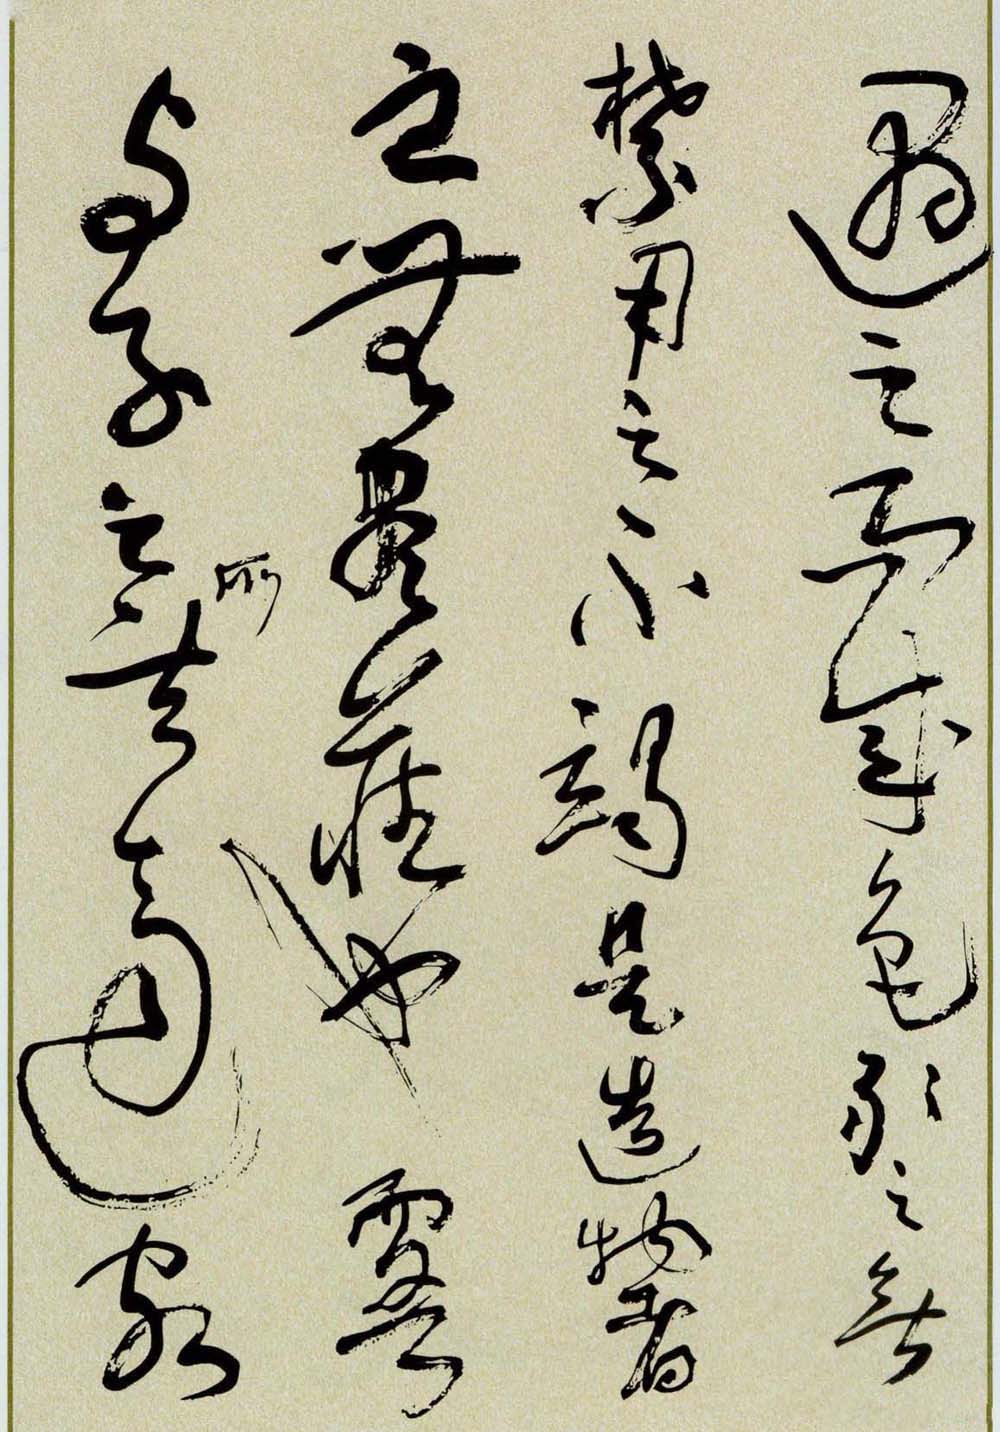 遇之而成色取之無
禁用之不竭是造物者
之無盡藏也而吾
與子之所共適客